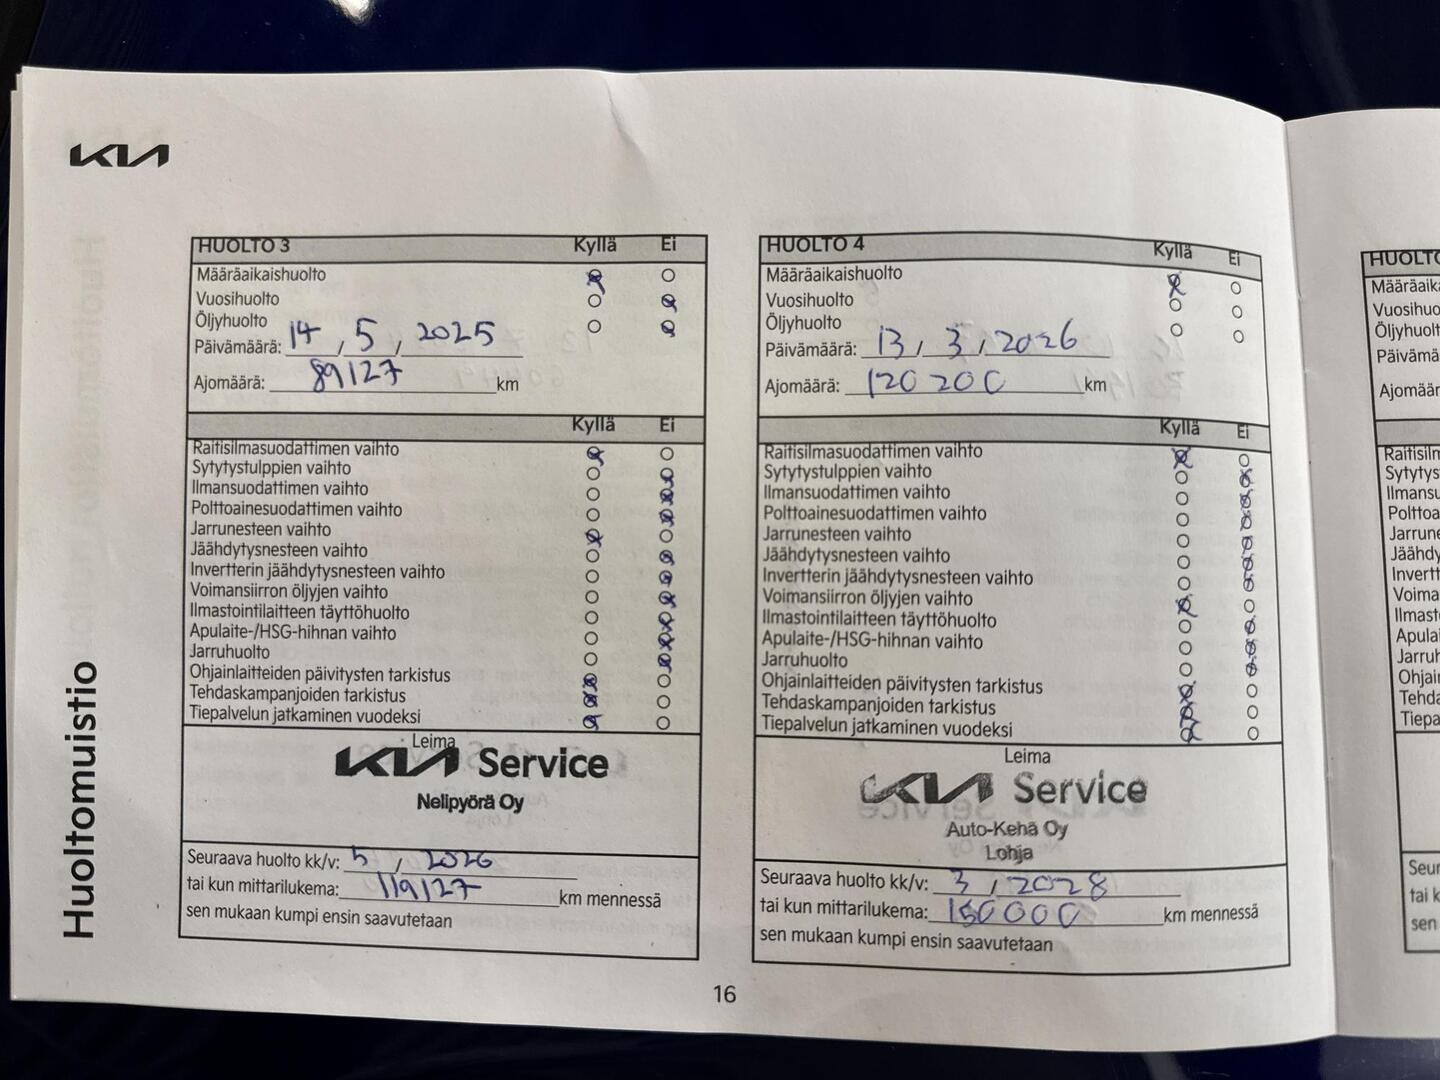 KIA
Huoltomuistio
HUOLTO 3 Kyllä Ei
Määräaikaishuolto
Vuosihuolto
Öljyhuolto
Päivämäärä: 14, 5, 2025
Ajomäärä: 89127 km
Kyllä Ei
Raitisilmasuodattimen vaihto
Sytytystulppien vaihto
Ilmansuodattimen vaihto
Polttoainesuodattimen vaihto
Jarrunesteen vaihto
Jäähdytysnesteen vaihto
Invertterin jäähdytysnesteen vaihto
Voimansiirron öljyjen vaihto
Ilmastointilaitteen täyttöhuolto
Apulaite-/HSG-hihnan vaihto
Jarruhuolto
Ohjainlaitteiden päivitysten tarkistus
Tehdaskampanjoiden tarkistus
Tiepalvelun jatkaminen vuodeksi
Leima
KIA Service
Nelipyörä Oy
Seuraava huolto kk/v: 5, 2026
tai kun mittarilukema: 119127 km mennessä
sen mukaan kumpi ensin saavutetaan
HUOLTO 4 Kyllä Ei
Määräaikaishuolto
Vuosihuolto
Öljyhuolto
Päivämäärä: 13, 3, 2026
Ajomäärä: 120 200 km
Kyllä Ei
Raitisilmasuodattimen vaihto
Sytytystulppien vaihto
Ilmansuodattimen vaihto
Polttoainesuodattimen vaihto
Jarrunesteen vaihto
Jäähdytysnesteen vaihto
Invertterin jäähdytysnesteen vaihto
Voimansiirron öljyjen vaihto
Ilmastointilaitteen täyttöhuolto
Apulaite-/HSG-hihnan vaihto
Jarruhuolto
Ohjainlaitteiden päivitysten tarkistus
Tehdaskampanjoiden tarkistus
Tiepalvelun jatkaminen vuodeksi
Leima
KIA Service
Auto-Kehä Oy
Lohja
Seuraava huolto kk/v: 3, 2028
tai kun mittarilukema: 150000 km mennessä
sen mukaan kumpi ensin saavutetaan
16